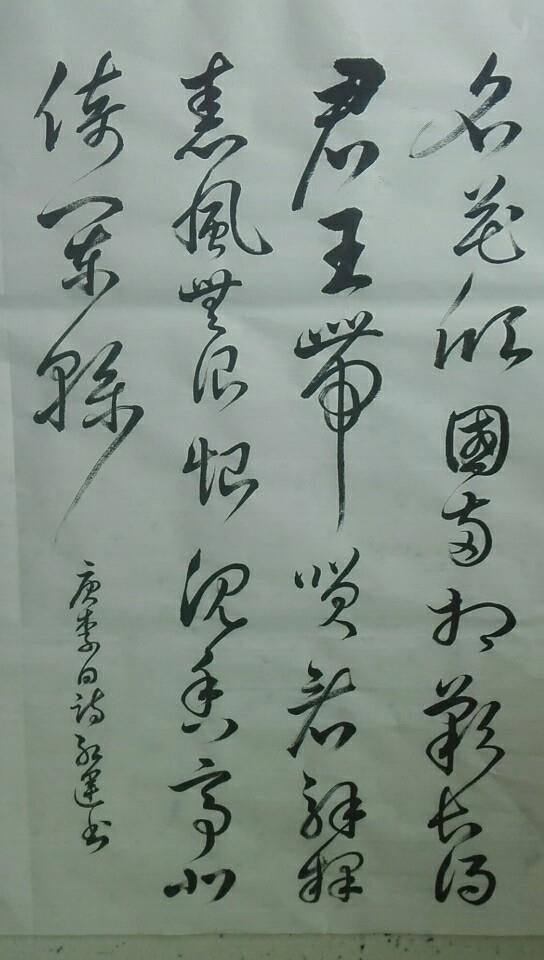 名花傾國兩相歡長得
君王帶笑看解釋
春風無限恨沉香亭北
倚闌幹
唐李白詩運書